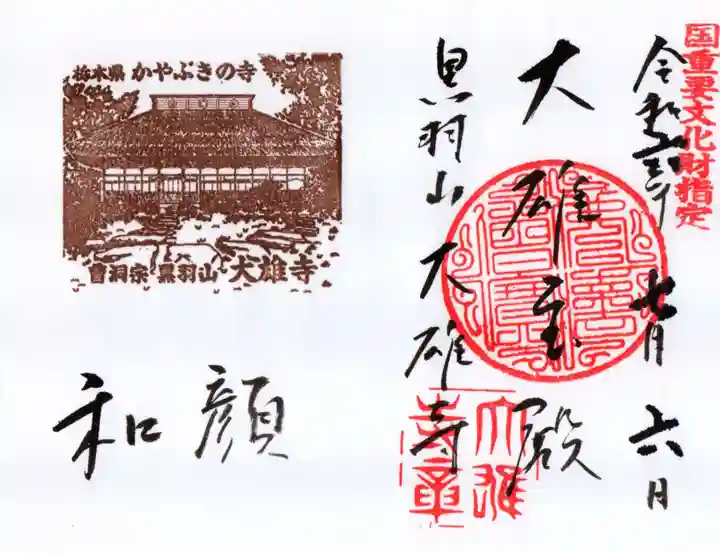 国重要文化財指定
令和 年 七月六日
大雄宝殿
黒羽山大雄寺
大雄
寺章
栃木県 かやぶきの寺
曹洞宗 黒羽山 大雄寺
和顔